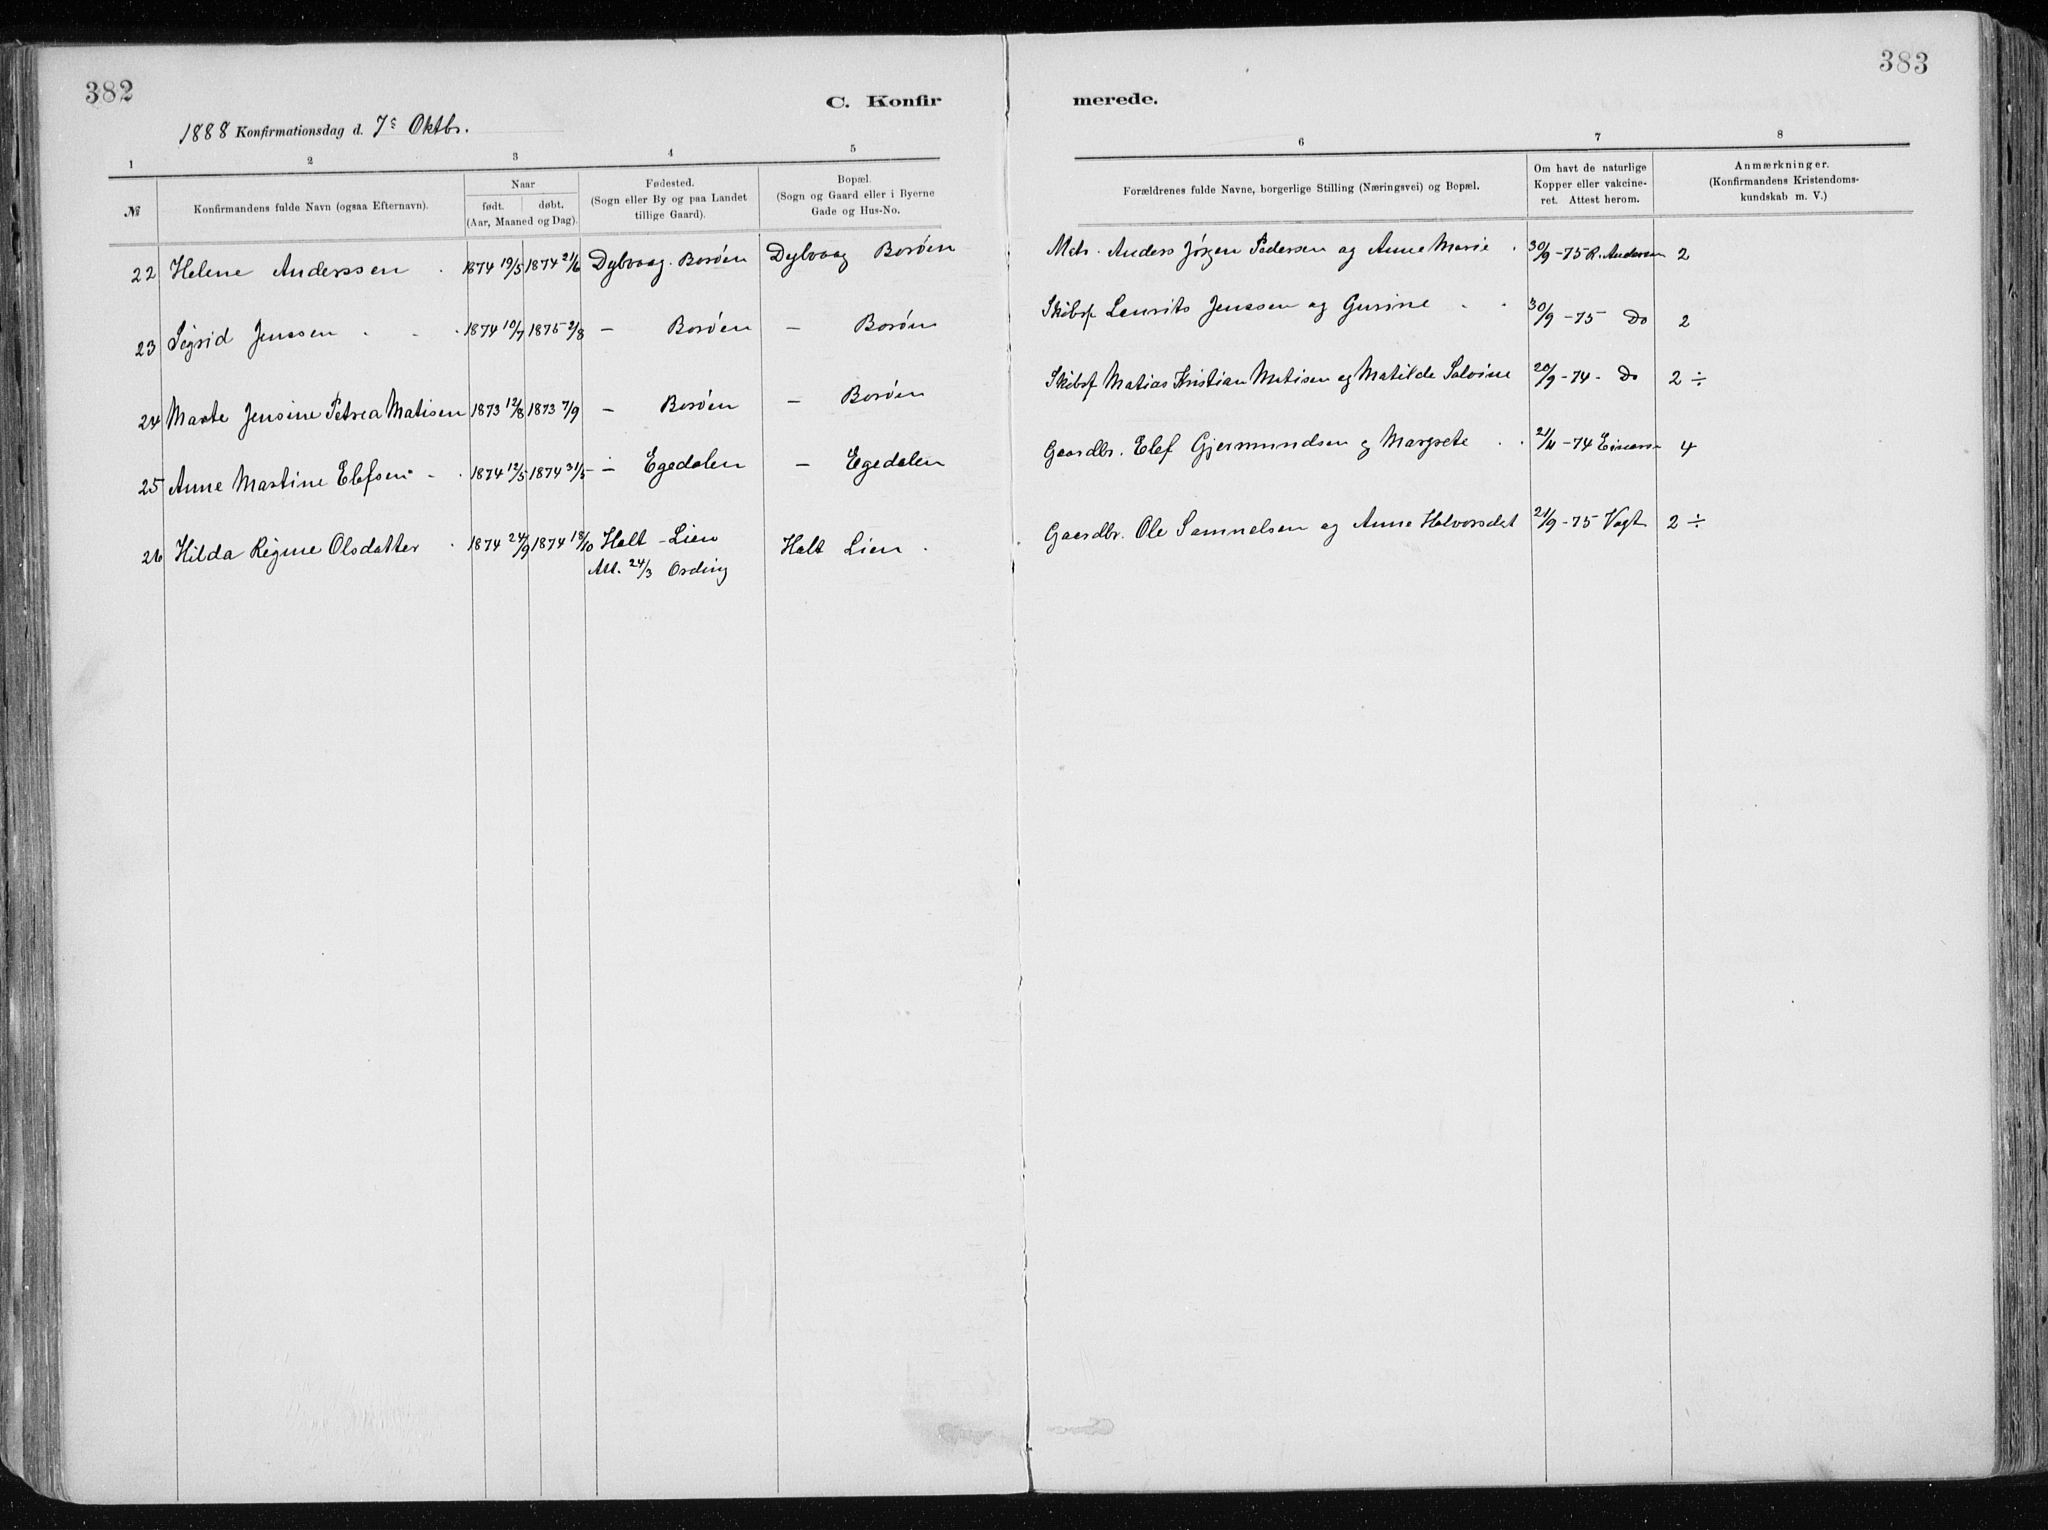 382
383
C. Konfir
merede.
1888 Konfirmationsdag d. 7s Oktbr.
1 2 3 4 5 6 7 8
№ Konfirmandens fulde Navn (ogsaa Efternavn). Naar født. døbt. (Aar, Maaned og Dag). Fødested. (Sogn eller By og paa Landet tillige Gaard). Bopæl. (Sogn og Gaard eller i Byerne Gade og Hus-No. Forældrenes fulde Navne, borgerlige Stilling (Næringsvei) og Bopæl. Om havt de naturlige Kopper eller vakcineret. Attest herom. Anmærkninger. (Konfirmandens Kristendomskundskab m. V.)
22 Helene Anderssen 1874 19/5 1874 21/6 Dybvaag Borøen Dybvaag Borøen Matr. Anders Jørgen Pedersen og Anne Marie 30/9 -75 R. Andersen 2
23 Sigrid Jenssen 1874 10/7 1875 2/8 — Borøen — Borøen Skibsf Laurits Jenssen og Gurine 30/9 -75 Do 2
24 Marte Jensine Petrea Matisen 1873 12/8 1873 7/9 — Borøen — Borøen Skibsf Matias Kristian Matisen og Matilde Salvine 20/9 -74 - Do 2 ÷
25 Anne Martine Elefsen 1874 12/5 1874 31/5 — Egedalen — Egedalen Gaardbr. Elef Gjermundsen og Margrete -74 4
26 Hilda Regine Olsdatter 1874 24/9 1874 18/10 Holt - Lien Holt Lien Gaardbr. Ole Samuelsen og Anne Halvorsdat 21/9 -75 Vogt 2 ÷
Att. 24/3 Ording